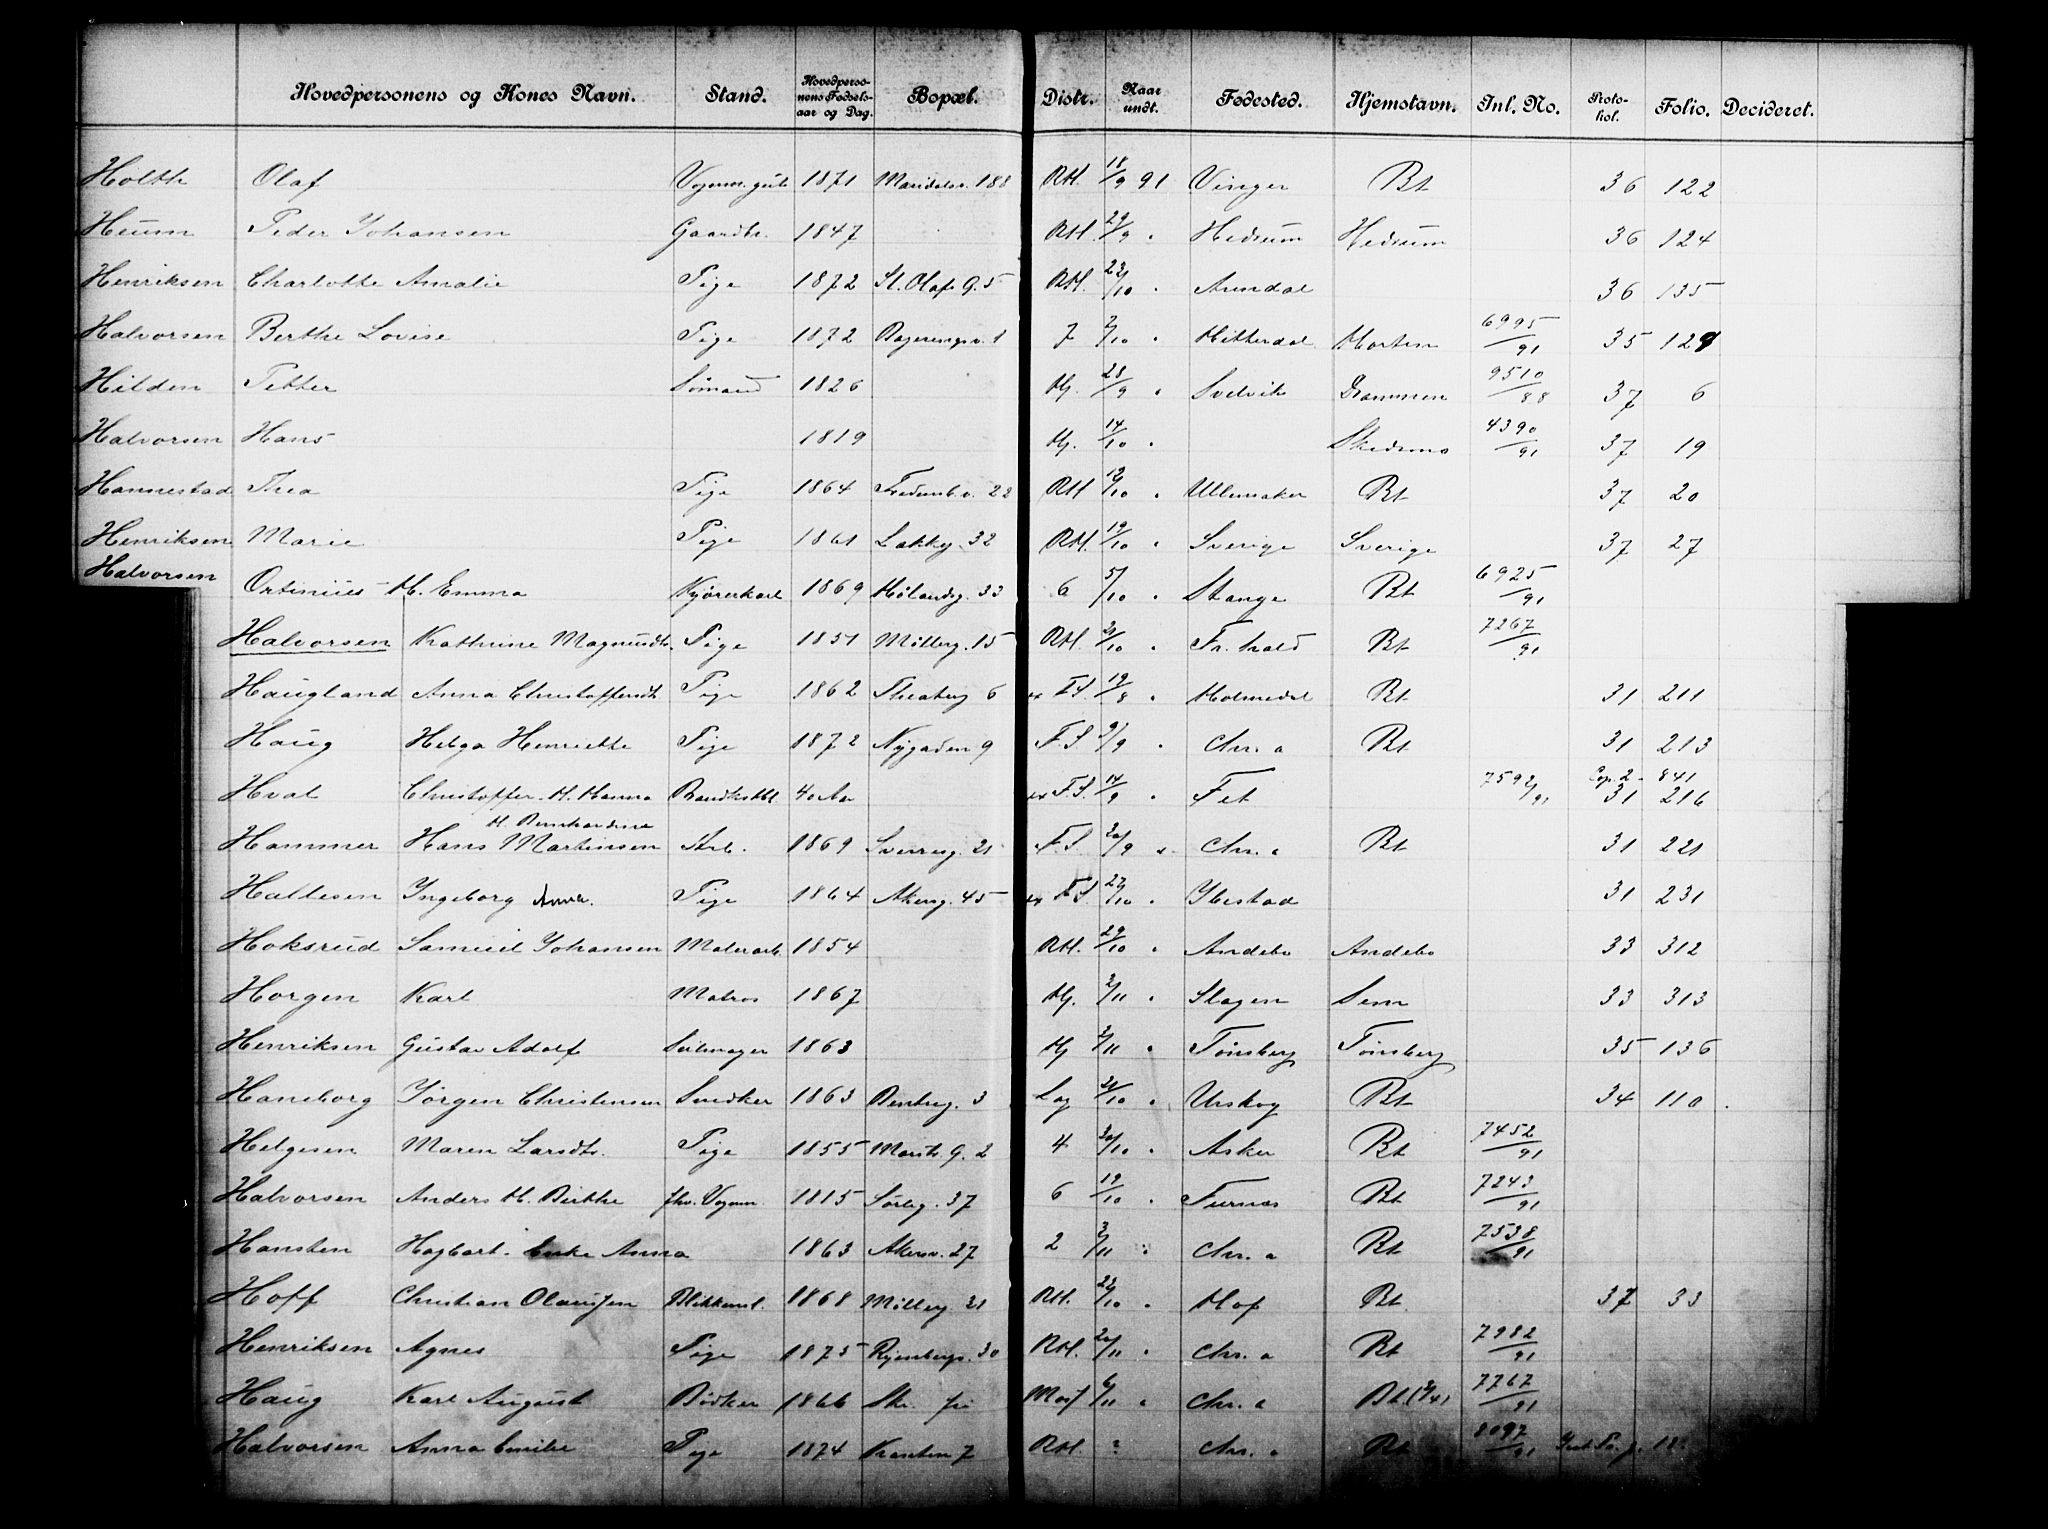 Hovedpersonens og Kones Navn. Stand. Hovedpersonens Fødselsaar og Dag. Bopæl. Distr. Naar undt. Fødested. Hjemstavn. Inl. No. Protokol. Folio. Decideret.
Holth Olaf Vognm. gut 1871 Maridalsv. 188 RH. 18/9 91 Vinger Bt 36 122
Heum Peder Johansen Gaardbr. 1847 RH. 29/9 " Hedrum Hedrum 36 124
Henriksen Charlotte Amalie Pige 1872 St. Olafs G. 5 RH. 22/10 " Arendal 36 135
Halvorsen Berthe Lovise Pige 1872 1 7 2/10 " Hitterdal 6995/91 35 129
Hilden Petter Sømand 1826 Hj. 28/9 " Svelvik Drammen 9510/88 37 6
Halvorsen Hans 1819 Hj. 14/10 " Skedsmo 4390/91 37 19
Hannestad Thea Pige 1864 22 RH 19/10 " Ullensaker Bt 37 20
Henriksen Marie Pige 1861 Lakkeg. 32 RH. 19/10 " Sverige Sverige 37 27
Halvorsen Ortinius H. Emma Kjørerkarl 1869 Hølandsg. 33 6 5/10 " Stange Bt 6925/91
Halvorsen Kathrine Magnusdtr. Pige 1851 Mølleg. 15 RH. 21/10 " Fr.hald Bt 7267/91
Haugland Anna Christoffersdt. Pige 1862 Theaterg 6 F.S. 19/8 " Holmedal Bt 31 211
Haug Helga Henriette Pige 1872 Nygaden 9 F.S. 9/9 " Chr.a Bt 31 213
Hval Christoffer H. Hanna 40 Aar F.S. 14/9 " Fet 7592/91 Cop. 2 - 841
31 216
H. Bernhardine
Hammer Hans Martinsen Arb. 1869 Sverresg. 21 F.S 20/9 " Chr.a Bt 31 221
Hallesen Ingeborg Anna. Pige 1864 Akersg. 45 F.S. 27/10 " Ibestad 31 231
Hoksrud Samuel Johansen Malerarb. 1854 RH. 29/10 " Andebo Andebo 33 312
Horgen Karl Matros 1867 Hj. 2/11 " Slagen Sem 33 313
Henriksen Gustav Adolf Seilmager 1863 Hj 2/11 " Tønsberg Tønsberg 35 136
Haneborg Jørgen Christensen Snedker 1863 3 Lag 21/10 " Urskog Bt 34 110
Helgesen Maren Larsdtr. Pige 1855 G. 2 4 30/10 " Asker Bt 7452/91
Halvorsen Anders H. Birthe fhv. Vognm. 1815 Sørlig. 37 6 19/10 " Furnes Bt 7243/91
Hansten Hagbart. Enke Anna 1863 Akersv. 27 2 3/11 " Chr.a Bt 7538/91
Hoff Christian Olaussen Blikkensl. 1868 Mølleg 21 RH. 22/10 " Hof Bt. 37 33
Henriksen Agnes Pige 1875 30 RH. 20/11 " Chr.a Bt 7982/91
Haug Karl August Bødker 1866 6/11 " Chr.a Bt. 7767/91
Halvorsen Anna Emilie Pige 1874 Kransten 7 RH. ? Chr.a Bt 8097/91